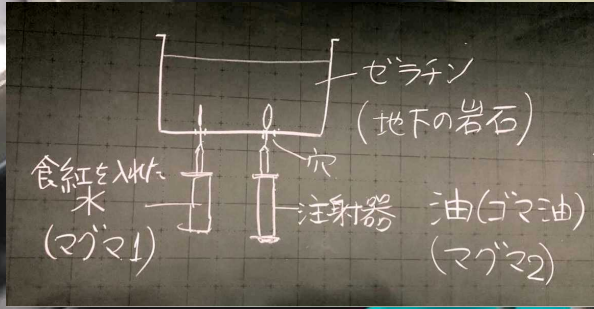 ゼラチン
(地下の岩石)
穴
食紅を入れた
水
(マグマ1)
注射器
油(ゴマ油)
(マグマ2)